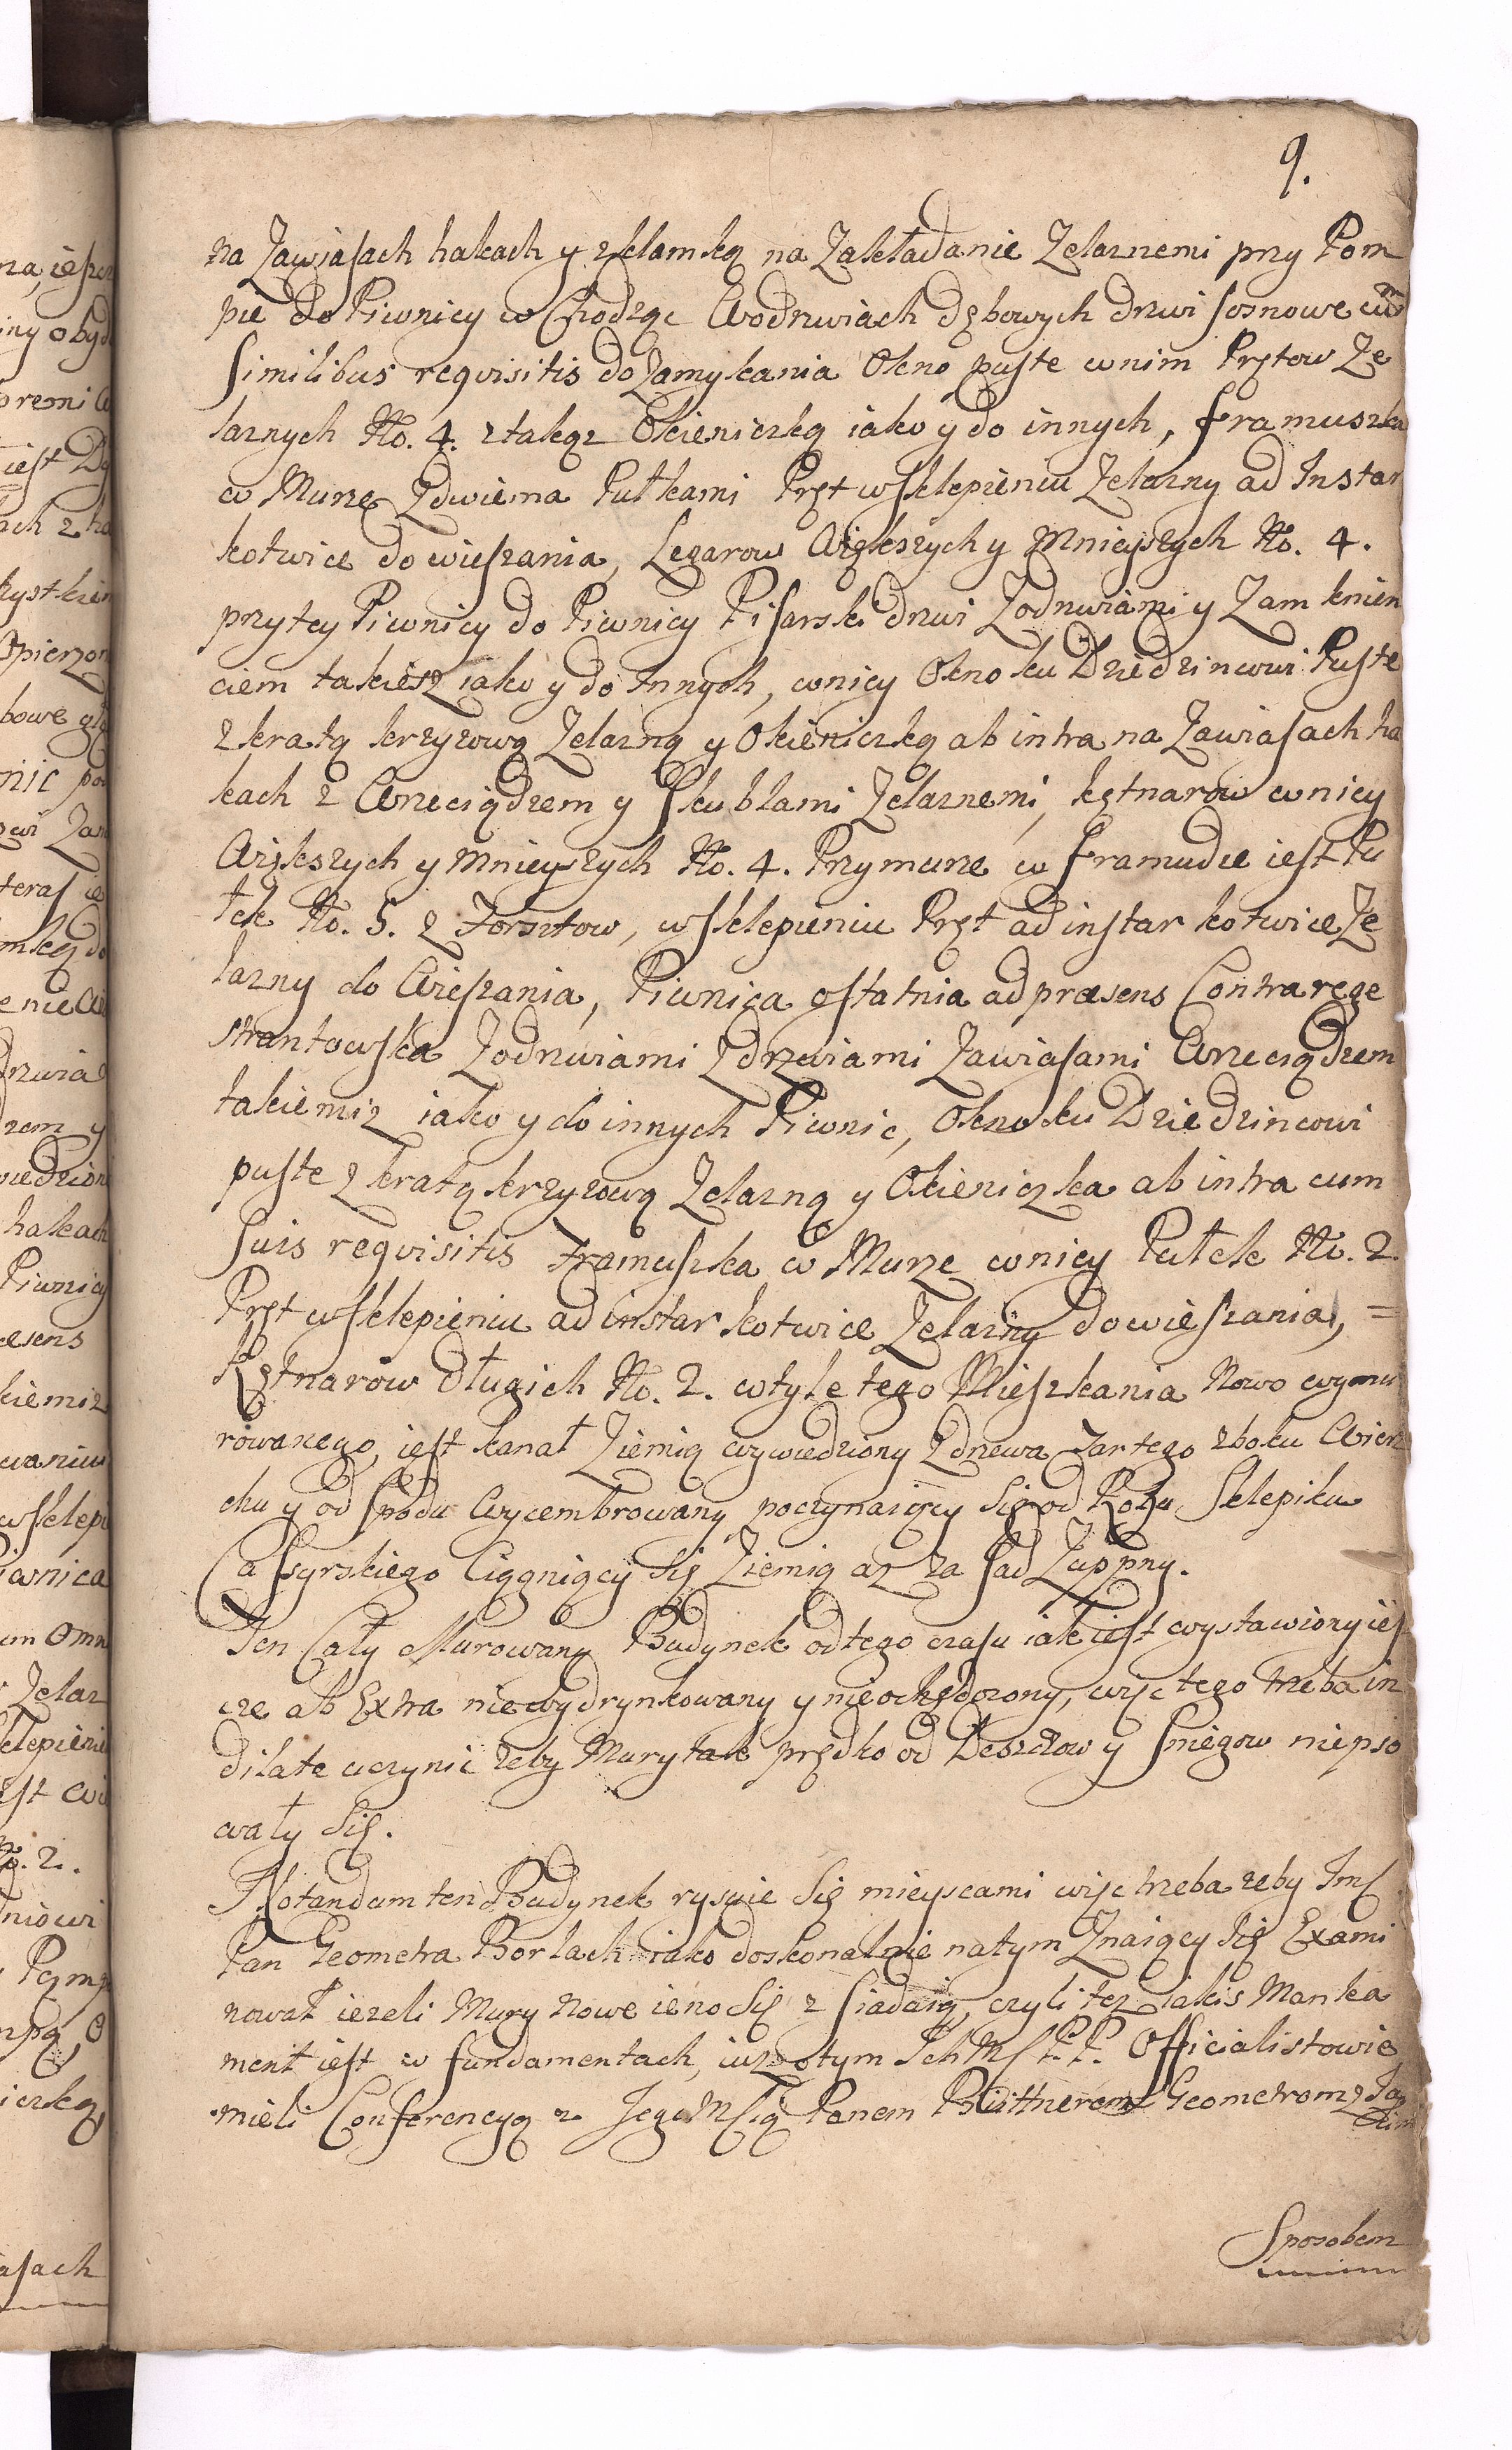 9.
na Zawiasach hakach y zklamką na Zakładanie Zelaznemi przy Pom
pie do Piwnicy wchodząc Wodrzwiach dębowych drzwi sosnowe cum
similibus requisitis do Zamykania Okno puste wnim Prętow Ze
laznych No. 4. ztakąz Okieniczką iako y do innych, framuszka
w Murze Zdwiema Pułkami Pręt wsklepieniu Zelazny ad Instar
kotwice do wieszania, Legarow Większych y Mnieyszych No. 4.
przytey Piwnicy do Piwnicy Pisarski drzwi Zodrwiami y Zamknien
ciem takiesz iako y do Innych, wnicy Okno ku Dziedzincowi Puste
z kratą krzyzową Zelazną y Okieniczką ab intra na Zawiasach ha
kach z Wrzeciądzem y Skublami Zelaznemi, kętnarow wnicy
Większych y mnieyszych No. 4. Przymurze w framudze iest Pu
łek No. 5. z Forsztow, wsklepieniu Pręt ad instar kotwice Ze
lazny do Wieszania, Piwnica ostatnia ad præsens Contrarege
strantowska Zodrwiami Zdrzwiami Zawiasami Wrzeciądzem
takiemiz iako y do innych Piwnic, Okno ku Dziedzincowi
puste z kratą krzyzową Zelazną y Okieniczka ab intra cum
suis requisitis Framuszka w Murze wnicy Pułek No. 2.
Pręt wsklepieniu ad instar kotwice Zelazny do wieszania, =
Kętnarow długich No. 2. wtyle tego Mieszkania Nowo wymu
rowanego, iest kanał Ziemią wywiedziony Zdrzewa Zartego zboku Wierz
chu y od Spodu Wycembrowany poczynaiący Się od Rogu Sklepiku
Cassyrskiego Ciągniący Się Ziemią az za Sad Zuppny.
Ten Cały Murowany Budynek odtego czasu iak iest wystawiony ies
cze ab Extra niewydrynkowany y nieochędozony, więc tego trzeba in
dilate uczynic zeby Mury tak prędko od Deszczow y Sniegow niepso
wały Się.
Notandum ten Budynek rysuie Się mieyscami więc trzeba zeby Jmć
Pan Geometra Borlach iako doskonalnie natym Znaiący Się Exami
nował iezeli Mury Nowe ieno Się z siadaią, czyli tez iakis Manka
ment iest w fundamentach, iuz otym Ich Mć P.P. Officialistowie
mieli Conferencyą z Jego Mścią Panem Büttnerem Geometrom, Ja
kim
Sposobem